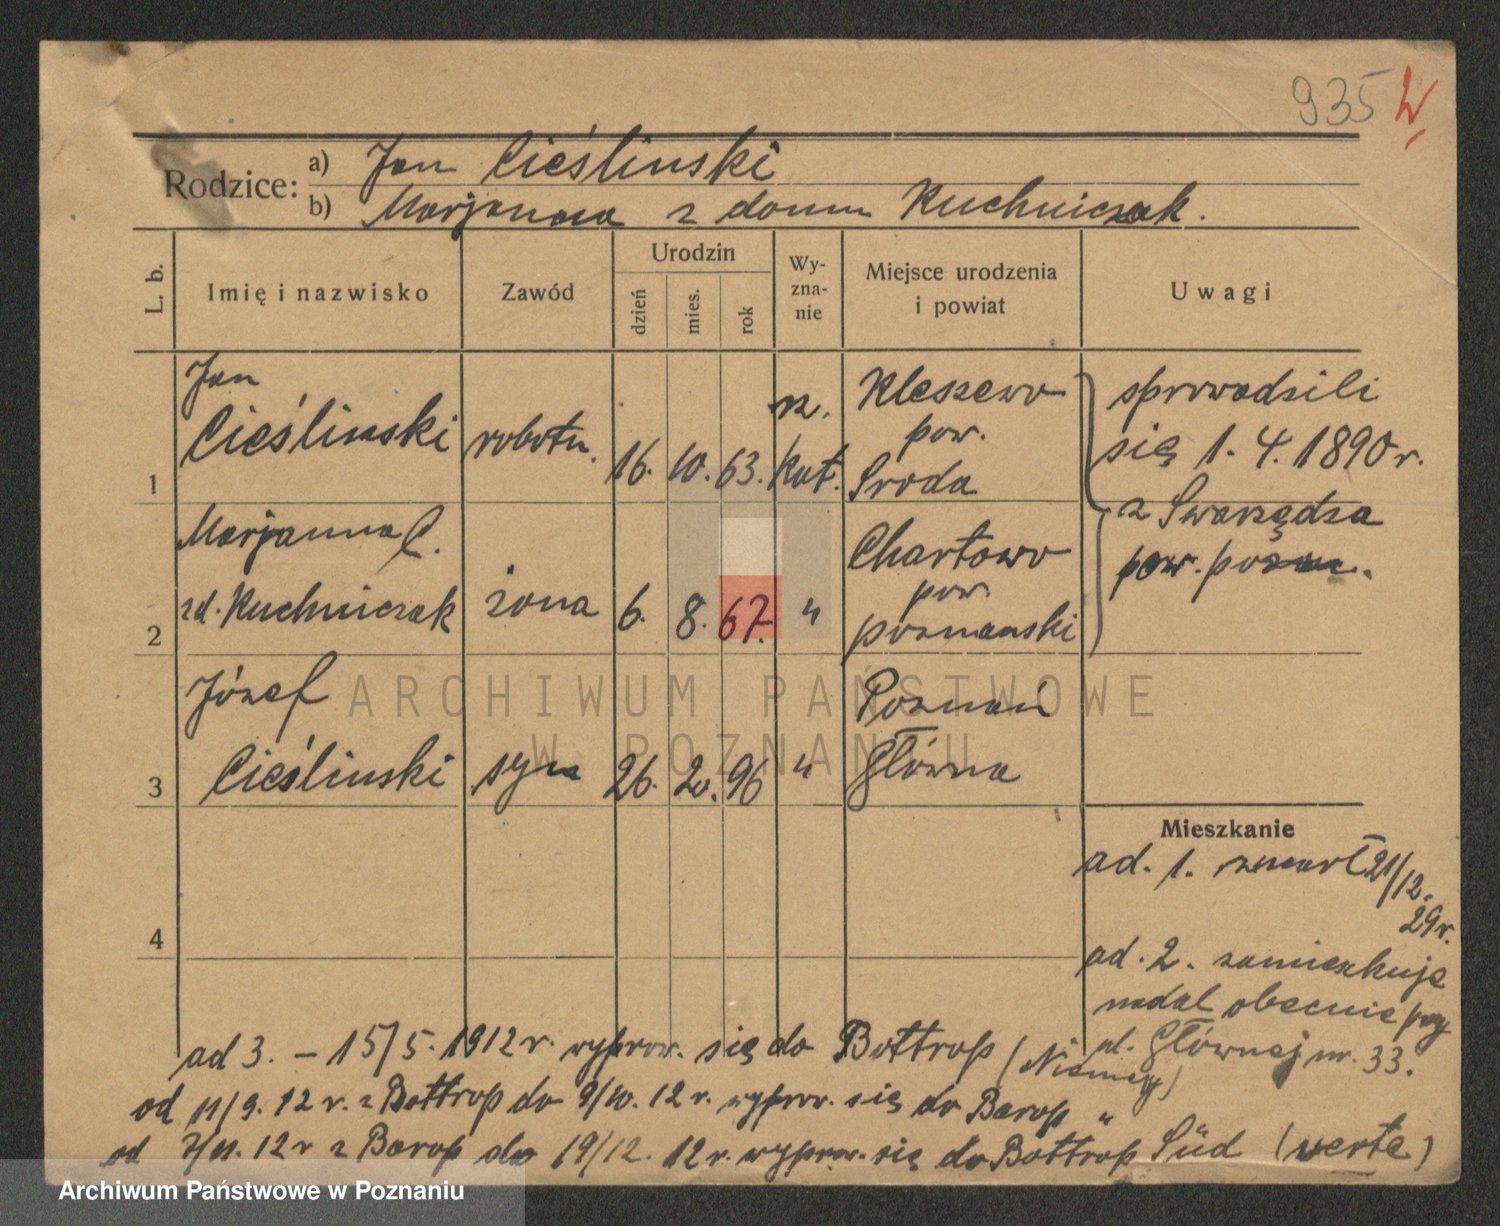 935
Rodzice: a) Jan Cieślinski
b) Marjanna z domu Kuchniczak.
L. b. Imię i nazwisko Zawód Urodzin dzień mies. rok Wy-zna-nie Miejsce urodzenia i powiat Uwagi
1 Jan Cieślinski robotn. 16. 10. 63. rz. kat. Kleszewo pow. Sroda
sprowadzili
się 1. 4. 1890 r.
z Swarzędza
pow. pozn.
2 Marjanna C. zd. Kuchniczak żona 6. 8. 67. " Chartowo pow. poznanski
3 Józef Cieślinski syn 26. 2. 96 " Poznań Główna
4
Mieszkanie
ad. 1. zmarł 21/12.
29 r.
ad. 2. zamieszkuje
nadal obecnie przy
ul. Głównej nr. 33.
ad 3. – 15/5. 1912 r. wyprow. się do Bottrop (Niemcy)
od 11/9. 12 r. z Bottrop do 9/10. 12 r. wyprow. się do Barop "
od 7/11. 12 r z Barop do 19/12. 12 r. wyprow. się do Bottrop Süd (verte)
ARCHIWUM PAŃSTWOWE
W POZNANIU
Archiwum Państwowe w Poznaniu